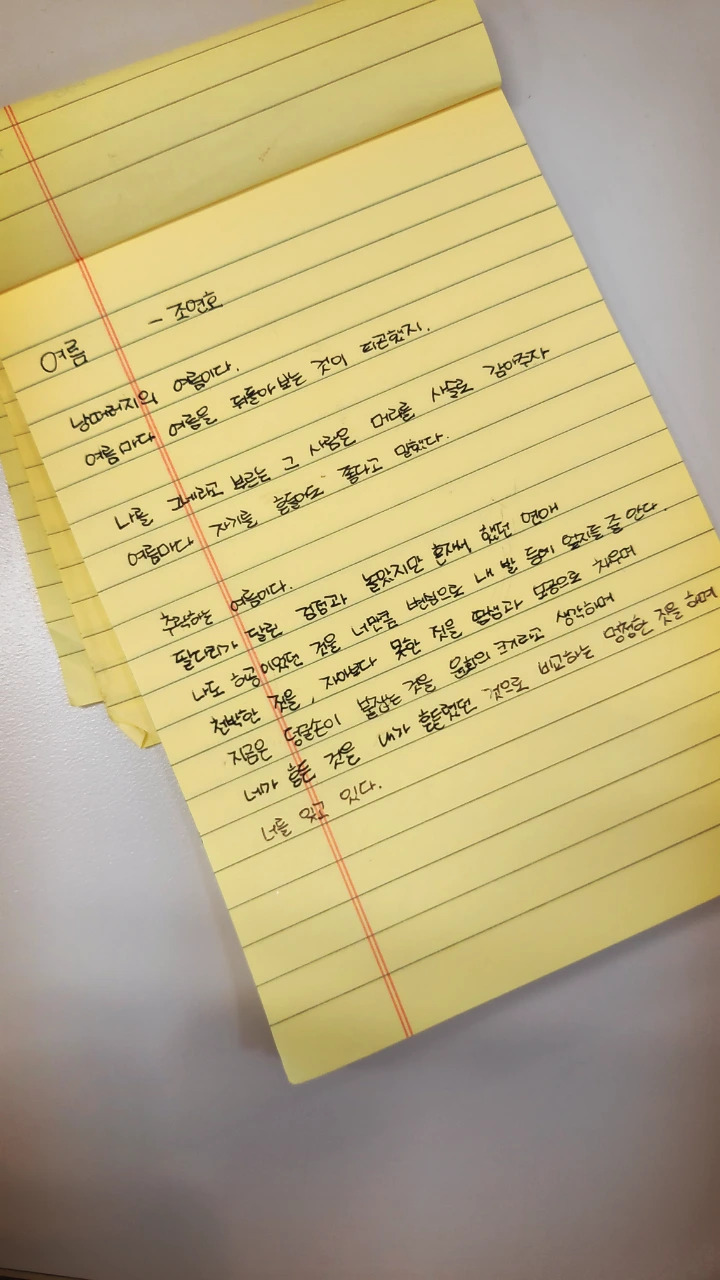 여름 - 조연호
낭떠러지의 여름이다.
여름마다 여름을 뒤돌아보는 것이 피곤했지.
나를 그네라고 부르는 그 사람은 머리를 사슬로 감아주자
여름마다 자기를 흔들어도 좋다고 말했다.
추락하는 여름이다.
팔다리가 달린 검정과 놀았지만 혼자서 했던 연애
나도 허공이었던 것을 너만큼 변형으로 내 발 등에 엎지를 줄 안다.
천박한 것을, 자아보다 못한 짓을 땀샘과 모공으로 치우며
지금은 덩굴손이 붙잡는 것을 윤회의 크기라고 생각하며
네가 흔든 것을 내가 흔들렸던 것으로 비교하는 멍청한 짓을 하며
너를 잊고 있다.